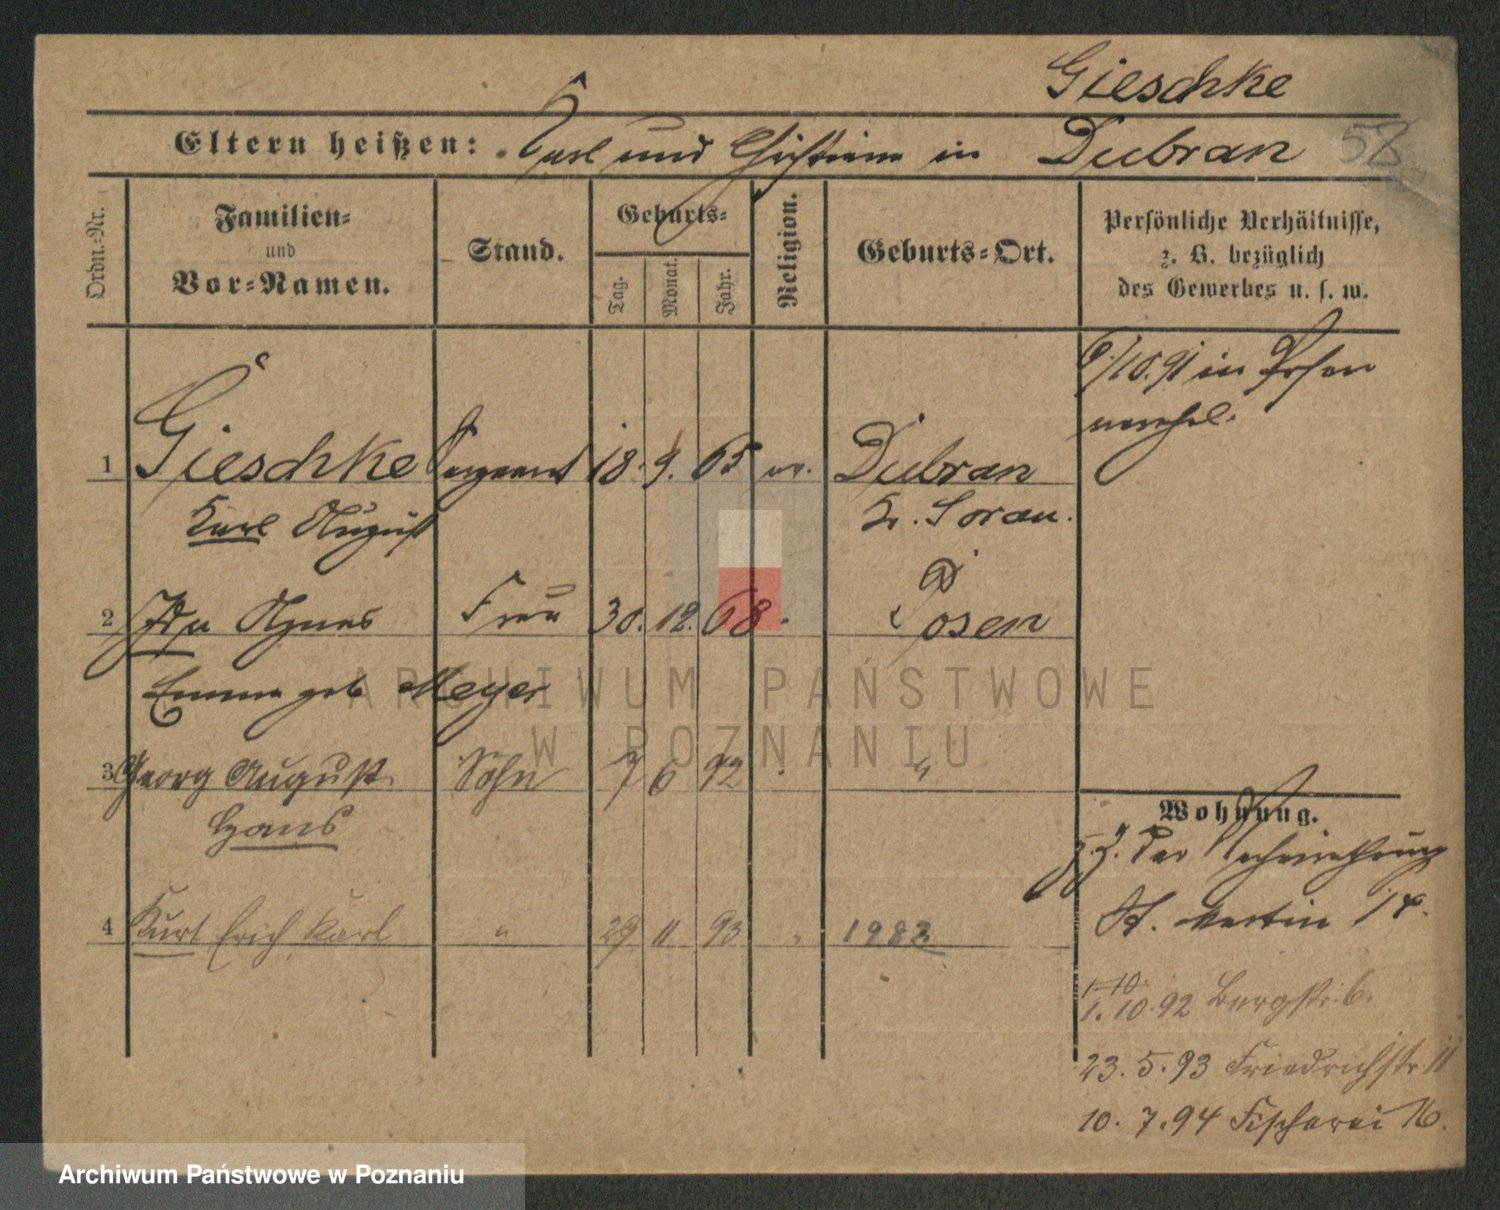 Gieschke
58
Eltern heißen: Karl und Christiane in Dubrau
Ordn.-Nr.
Familien- und Vor-Namen.
Stand.
Geburts-
Tag. Monat. Jahr.
Religion.
Geburts-Ort.
Persönliche Verhältnisse,
z. B. bezüglich
des Gewerbes u. s. w.
6/10.91 in Posen
verehel.
1 Gieschke Sergeant 18. 9. 65 ev. Dubrau
Karl August Kr. Sorau.
2 Ida Agnes Frau 30. 12. 68 Posen
Emma geb Meyer
3 Georg August Sohn 7 6 92 "
Hans
4 Kurt Erich Karl " 29 11 93 " 1982
Wohnung.
z. Z. der
St. Martin
1. 10.
1. 10. 92 Bergstr. 6.
23. 5. 93 Friedrichstr. 11
10. 7. 94 Fischerei 16.
ARCHIWUM PAŃSTWOWE
W POZNANIU
Archiwum Państwowe w Poznaniu